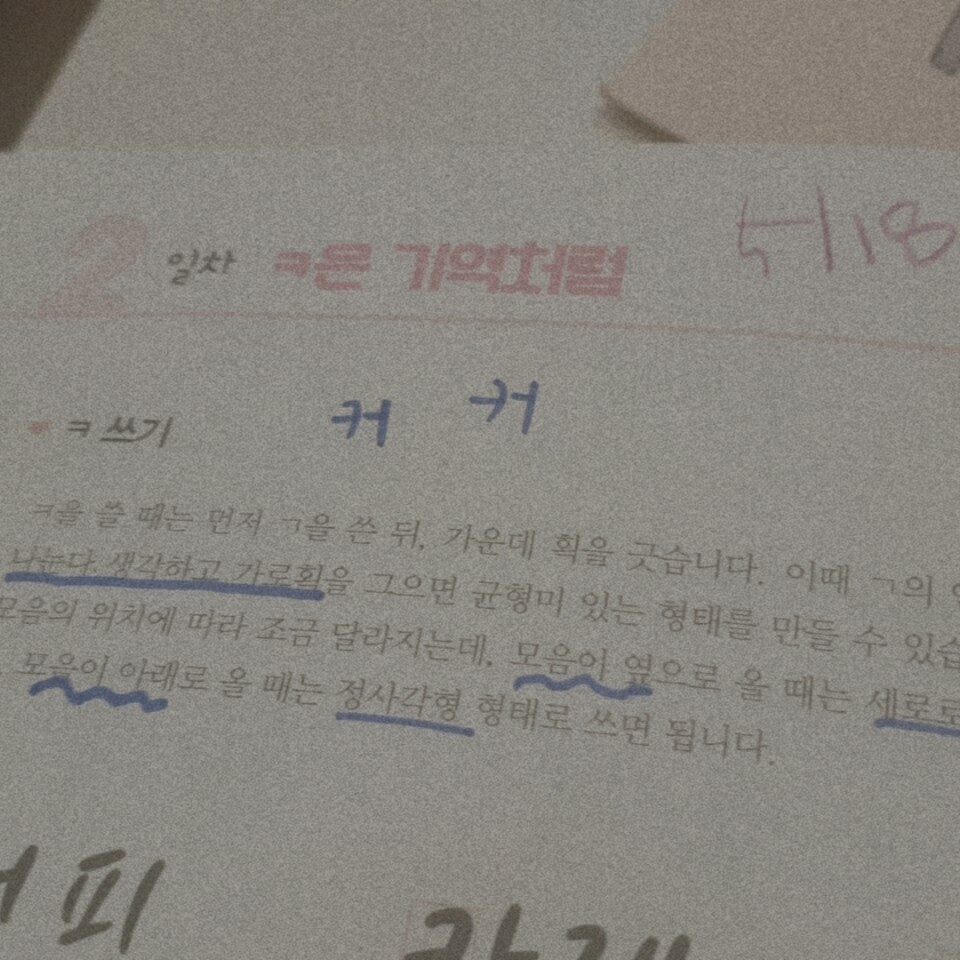 2 일차 ㅋ은 기억처럼
5/18
ㅋ 쓰기 커 커
ㅋ을 쓸 때는 먼저 ㄱ을 쓴 뒤, 가운데 획을 긋습니다. 이때 ㄱ의
나눈다 생각하고 가로획을 그으면 균형미 있는 형태를 만들 수 있습
모음의 위치에 따라 조금 달라지는데, 모음이 옆으로 올 때는 세로로
모음이 아래로 올 때는 정사각형 형태로 쓰면 됩니다.
피